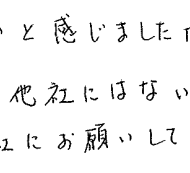 と感じました
他社にはない
社にお願いして